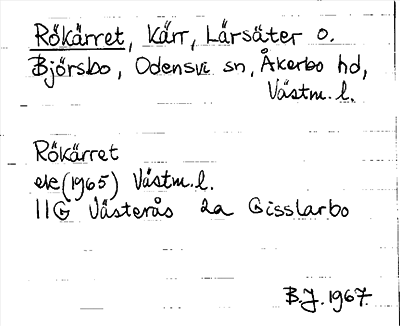 Rökärret, Kärr, Lärsäter o.
Björsbo, Odensvi sn, Åkerbo hd,
Västm. l.
Rökärret
ek (1965) Västm. l.
11G Västerås 2a Gisslarbo
B.J. 1967.